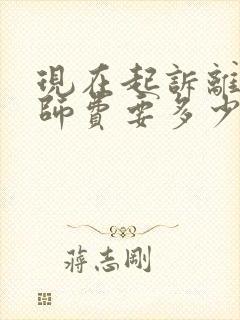 現在起訴離
師費要多少
蔣志剛